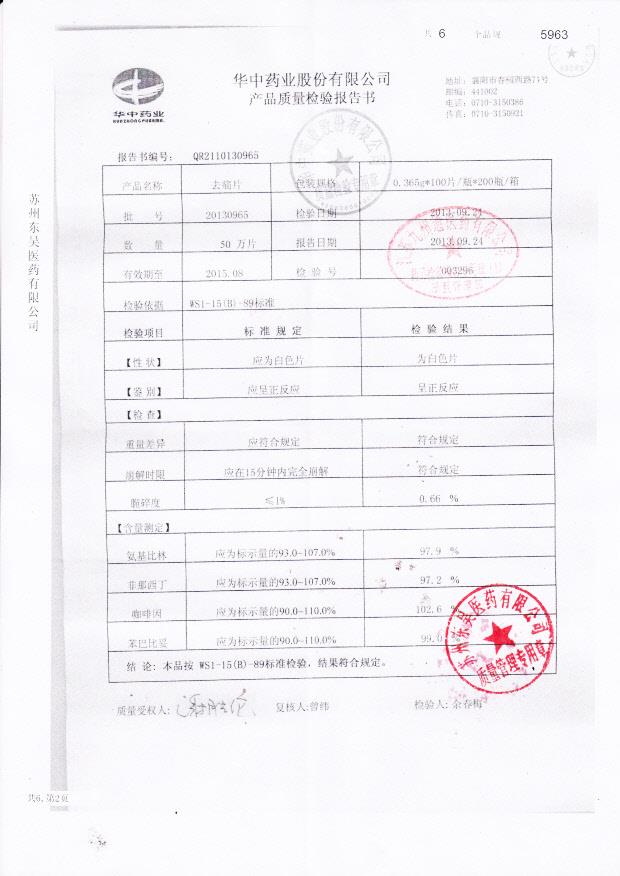 共 6 个品规 5963
华中药业
华中药业股份有限公司
产品质量检验报告书
地址: 襄阳市春园西路71号
邮编: 441002
电话: 0710-3150386
传真: 0710-3150921
报告书编号: QR2110130965
产品名称 去痛片 包装规格 0.365g*100片/瓶*200瓶/箱
批 号 20130965 检验日期 2013.09.21
数 量 50 万片 报告日期 2013.09.24
有效期至 2015.08 检 验 号 003296
检验依据 WS1-15(B)-89标准
检验项目 标 准 规 定 检 验 结 果
【性 状】 应为白色片 为白色片
【鉴 别】 应呈正反应 呈正反应
【检 查】
重量差异 应符合规定 符合规定
崩解时限 应在15分钟内完全崩解 符合规定
脆碎度 ≤1% 0.66 %
【含量测定】
氨基比林 应为标示量的93.0-107.0% 97.9 %
非那西丁 应为标示量的93.0-107.0% 97.2 %
咖啡因 应为标示量的90.0-110.0% 102.6 %
苯巴比妥 应为标示量的90.0-110.0% 99.0 %
结 论: 本品按 WS1-15(B)-89标准检验, 结果符合规定。
质量受权人: 复核人:曾纬 检验人: 余春梅
苏州东吴医药有限公司
质量管理专用章
苏州东吴医药有限公司
共6,第2页